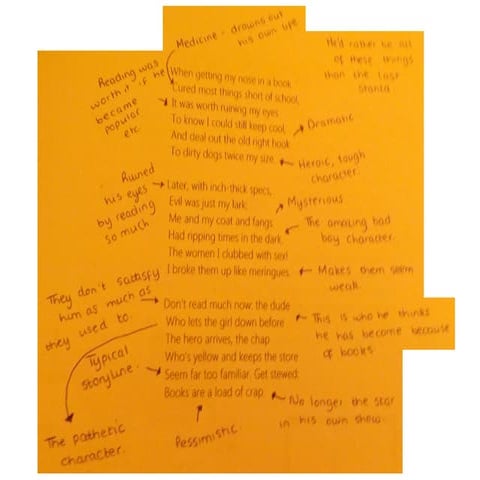 Medicine - drowns out
his own life
He'd rather be all
of these things
than the last
stanza
Reading was
worth it if he
became
popular
etc
When getting my nose in a book
Cured most things short of school,
It was worth ruining my eyes
To know I could still keep cool,
And deal out the old right hook
To dirty dogs twice my size.
Dramatic
Heroic, tough
character.
Ruined
his eyes
by reading
so much
Later, with inch-thick specs,
Evil was just my lark:
Me and my coat and fangs
Had ripping times in the dark.
The women I clubbed with sex!
I broke them up like meringues.
Mysterious
The amazing bad
boy character.
Makes them seem
weak.
They don't satisfy
him as much as
they used to.
Don't read much now: the dude
Who lets the girl down before
The hero arrives, the chap
Who's yellow and keeps the store
Seem far too familiar. Get stewed:
Books are a load of crap
This is who he thinks
he has become because
of books
Typical
storyline.
No longer the star
in his own show.
The pathetic
character.
Pessimistic.